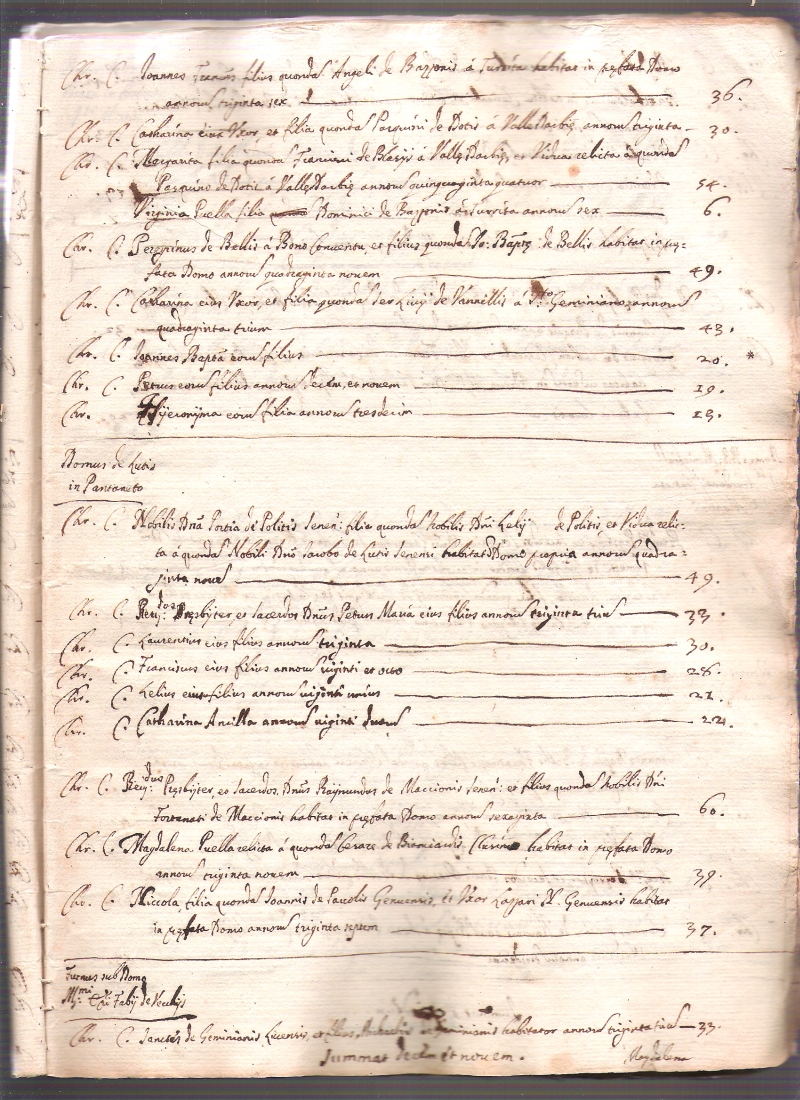 Chr. C. Joannes filius quondam Angeli de Bazzonis á Turrita habitat in prefata Domo
annorum triginta sex 36.
Chr. C. Catharina eius Uxor, et filia quondam Pasquini de Dotis á annorum triginta 30.
Chr. C. Margarita filia quondam Francisci de Blasijs á et Vidua relicta á quondam
Pasquino de Dotis á annorum quinquaginta quatuor 54.
Virginia Puella filia Dominici de Bazzonis á Turrita annorum sex 6.
Chr. C. Peregrinus de Bellis á Bono Conventu, et filius quondam Jo: Bapte: de Bellis habitat in pre=
fata Domo annorum quadraginta novem 49.
Chr. C. Catharina eius Uxor, et filia quondam Ser de á Sto: Geminiano annorum
quadraginta trium 43.
Chr. C. Joannes Bapta eorum filius 20. *
Chr. C. Petrus eorum filius annorum decem, et novem 19.
Chr. Hyieronyma eorum filia annorum tresdecim 13.
Domus de Lutis
in Pantaneto
Chr. C. Nobilis Dna Portia de Politis Senen: filia quondam Nobilis Dni Lelij de Politis, et Vidua relic=
ta á quondam Nobili Dno Jacobo de Lutis Senensi habitat Domo propria annorum quadra=
ginta novem 49.
Chr. C. Rev:dus Presbyter, et Sacerdos Dnus Petrus Maria eius filius annorum triginta trium 33.
Chr. C. Laurentius eius filius annorum triginta 30.
Chr. C. Franciscus eius filius annorum viginti et octo 28.
Chr. C. Lelius eius filius annorum viginti unius 21.
Chr. C. Catharina Ancilla annorum viginti duorum 22.
Chr. C. Rev:dus Presbyter, et Sacerdos, Dnus Raymundus de Maccionis Senen: et filius quondam Nobilis Dni
Fortunati de Maccionis habitat in prefata Domo annorum sexaginta 60.
Chr. C. Magdalena Puella relicta á quondam Cesare de habitat in prefata Domo
annorum triginta novem 39.
Chr. C. Niccola filia quondam Joannis de Paulis Genuensis, et Uxor Gaspari N. Genuensis habitat
in prefata Domo annorum triginta septem 37.
Furnus sub Domo
Fabij de Vecchijs
Chr. C. Sanctes de Geminianis Lucensis, et filius de Geminianis habitator annorum triginta trium 33.
Summat decem et novem.
Magdalena